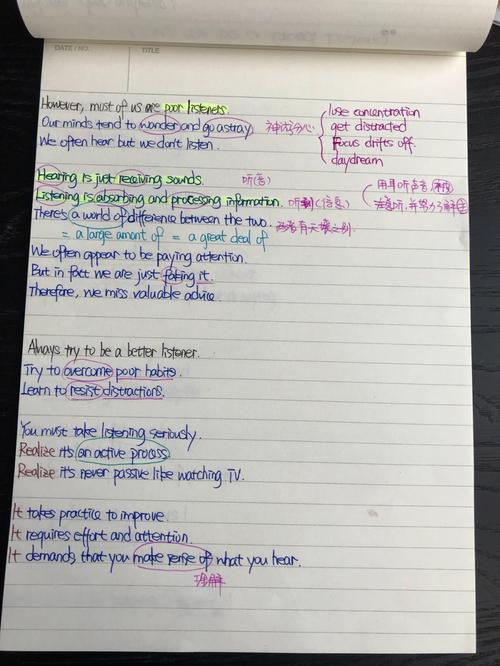 DATE / NO.
TITLE
However, most of us are poor listeners.
Our minds tend to wander and go astray 神游分心
lose concentration
get distracted
Focus drifts off.
daydream
We often hear but we don't listen.
Hearing is just receiving sounds. 听(音)
Listening is absorbing and processing information. 听到(信息)
用耳听声音,
There's a world of difference between the two. 两者有天壤之别.
= a large amont of = a great deal of
We often appear to be paying attention.
But in fact we are just faking it.
Therefore, we miss valuable advice.
Always try to be a better listener.
Try to overcome poor habits.
Learn to resist distractions.
You must take listening seriously.
Realize it's an active process
Realize it's never passive like watching TV.
It takes practice to improve.
It requires effort and attention.
It demands that you make sense of what you hear.
理解